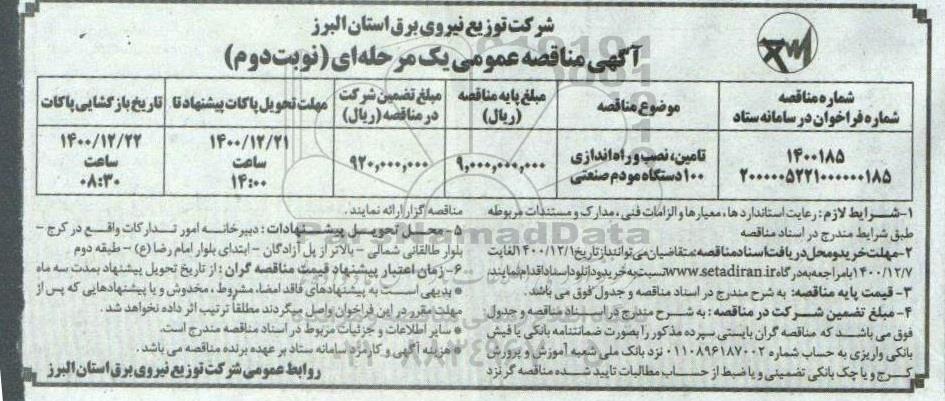 شرکت توزیع نیروی برق استان البرز
آگهی مناقصه عمومی یک مرحله‌ای (نوبت دوم)
شماره مناقصه
شماره فراخوان در سامانه ستاد
موضوع مناقصه
مبلغ پایه مناقصه
(ریال)
مبلغ تضمین شرکت
در مناقصه (ریال)
مهلت تحویل پاکات پیشنهاد تا
تاریخ بازگشایی پاکات
۱۴۰۰۱۸۵
۲۰۰۰۰۰۵۲۲۱۰۰۰۰۰۰۱۸۵
تامین، نصب و راه اندازی
۱۰۰ دستگاه مودم صنعتی
۹,۰۰۰,۰۰۰,۰۰۰
۹۲۰,۰۰۰,۰۰۰
۱۴۰۰/۱۲/۲۱
ساعت
۱۴:۰۰
۱۴۰۰/۱۲/۲۲
ساعت
۰۸:۳۰
۱-شرایط لازم: رعایت استانداردها، معیارها و الزامات فنی، مدارک و مستندات مربوطه
طبق شرایط مندرج در اسناد مناقصه
۲-مهلت خرید و محل دریافت اسناد مناقصه: متقاضیان می‌توانند از تاریخ ۱۴۰۰/۱۲/۱ لغایت
۱۴۰۰/۱۲/۷ با مراجعه به درگاه www.setadiran.ir نسبت به خرید و دانلود اسناد اقدام نمایند.
۳- قیمت پایه مناقصه: به شرح مندرج در اسناد مناقصه و جدول فوق می باشد.
۴- مبلغ تضمین شرکت در مناقصه: به شرح مندرج در اسناد مناقصه و جدول
فوق می باشد که مناقصه گران بایستی سپرده مذکور را بصورت ضمانتنامه بانکی یا فیش
بانکی واریزی به حساب شماره ۰۱۱۰۸۹۶۱۸۷۰۰۲ نزد بانک ملی شعبه آموزش و پرورش
کرج و یا چک بانکی تضمینی و یا ضبط از حساب مطالبات تایید شده مناقصه گر نزد
مناقصه گزار ارائه نمایند.
۵- محل تحویل پیشنهادات: دبیرخانه امور تدارکات واقع در کرج -
بلوار طالقانی شمالی - بالاتر از پل آزادگان - ابتدای بلوار امام رضا (ع) - طبقه دوم
۶- زمان اعتبار پیشنهاد قیمت مناقصه گران: از تاریخ تحویل پیشنهاد بمدت سه ماه
• بدیهی است به پیشنهادهای فاقد امضا، مشروط، مخدوش و یا پیشنهادهایی که پس از
مهلت مقرر در این فراخوان واصل میگردند مطلقاً ترتیب اثر داده نخواهد شد.
• سایر اطلاعات و جزئیات مربوط در اسناد مناقصه مندرج است.
• هزینه آگهی و کارمزد سامانه ستاد بر عهده برنده مناقصه می باشد.
روابط عمومی شرکت توزیع نیروی برق استان البرز